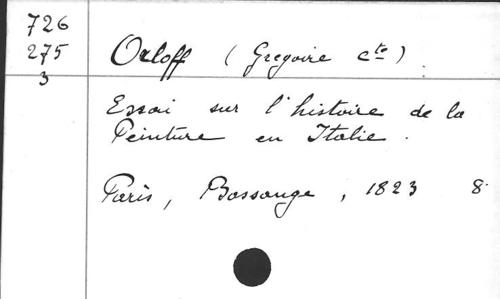 726
275
3
Orloff (Gregoire Cte).
Essai sur l'histoire de la
Peinture en Italie.
Paris, Bossange, 1823 8